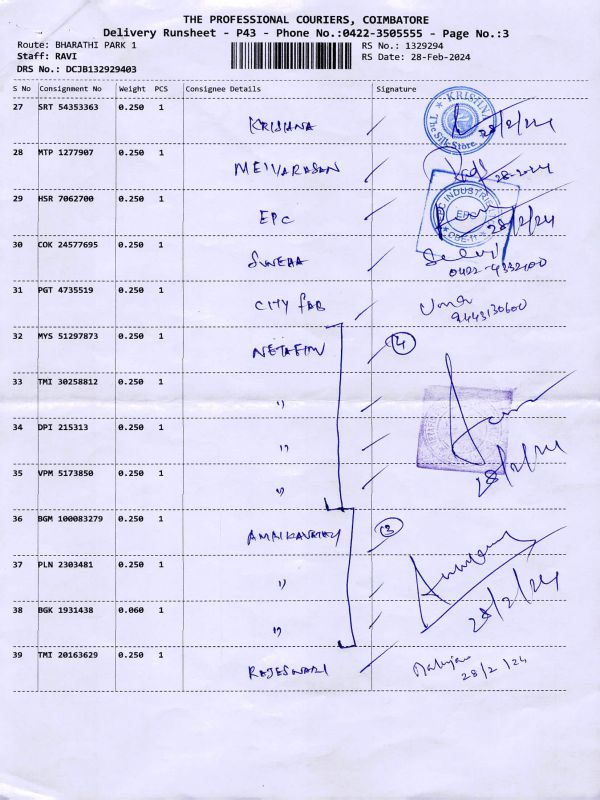 THE PROFESSIONAL COURIERS, COIMBATORE
Delivery Runsheet - P43 - Phone No.:0422-3505555 - Page No.:3
Route: BHARATHI PARK 1 RS No.: 1329294
Staff: RAVI RS Date: 28-Feb-2024
DRS No.: DCJB132929403
S No Consignment No Weight PCS Consignee Details Signature
27 SRT 54353363 0.250 1 KRISHNA KRISHNA The Silk Store 28/2/24
28 MTP 1277907 0.250 1 MEIYARASAN 28-2024
29 HSR 7062700 0.250 1 EPC INDUSTRIES EPC CBE-11 28/2/24
30 COK 24577695 0.250 1 SNEHA
31 PGT 4735519 0.250 1 CITY FAB Uma
9443130600
32 MYS 51297873 0.250 1 NETAFIM 4
33 TMI 30258812 0.250 1 "
34 DPI 215313 0.250 1 "
28/2/24
35 VPM 5173850 0.250 1 "
36 BGM 100083279 0.250 1 3
37 PLN 2303481 0.250 1 "
38 BGK 1931438 0.060 1 " 28/2/24
39 TMI 20163629 0.250 1 RAJESWARI
28/2/24